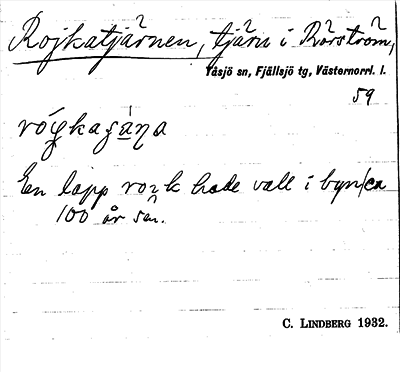 Rojkatjärnen, tjärn i Rörström,
Tåsjö sn, Fjällsjö tg, Västernorrl. l.
59
En lapp hade vall i byn ca
100 år sen.
C. LINDBERG 1932.